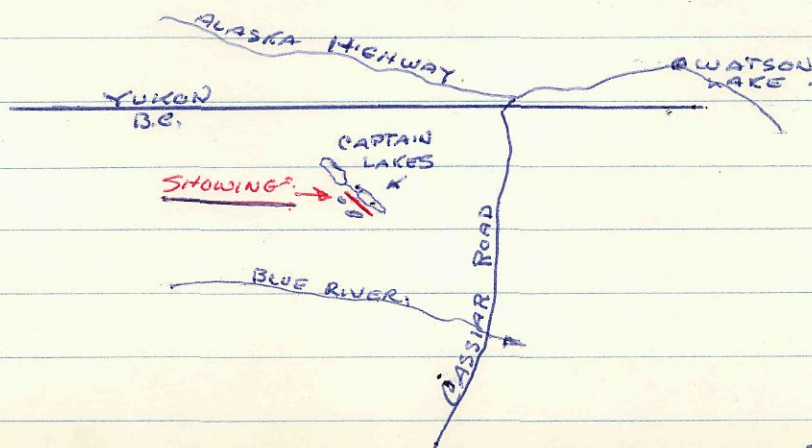 ALASKA HIGHWAY.
WATSON
LAKE
YUKON
B.C.
CAPTAIN
LAKES
SHOWINGS
BLUE RIVER.
CASSIAR ROAD